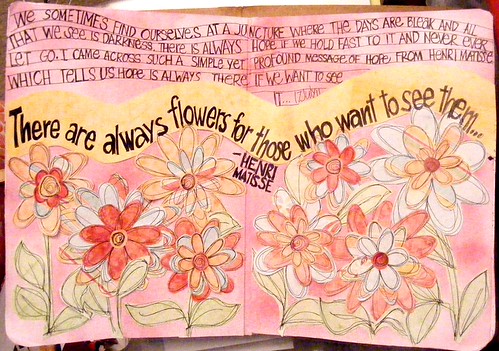 WE SOMETIMES FIND OURSELVES AT A JUNCTURE WHERE THE DAYS ARE BLEAK AND ALL
THAT WE SEE IS DARKNESS. THERE IS ALWAYS HOPE IF WE HOLD FAST TO IT AND NEVER EVER
LET GO. I CAME ACROSS SUCH A SIMPLE YET PROFOUND MESSAGE OF HOPE FROM HENRI MATISSE
WHICH TELLS US HOPE IS ALWAYS THERE IF WE WANT TO SEE
IT...
There are always flowers for those who want to see them...
-HENRI
MATISSE